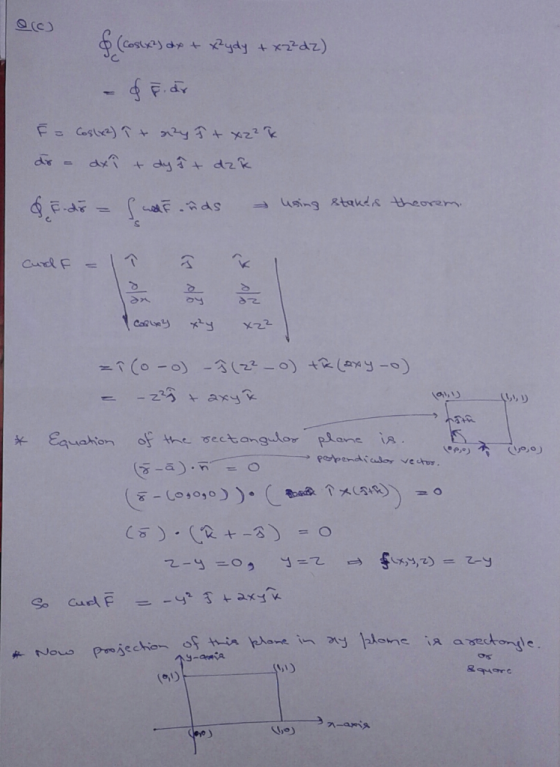 Q(C)
∮c (cos(x²) dx + x²y dy + xz² dz)
= ∮ F̄·dr̄
F̄ = cos(x²) î + x²y ĵ + xz² k̂
dr̄ = dx î + dy ĵ + dz k̂
∮c F̄·dr̄ = ∫s curl F̄ · n̂ ds ⇒ using stoke's theorem.
curl F = | î ĵ k̂ |
∂/∂x ∂/∂y ∂/∂z
x²y xz²
= î(0-0) - ĵ(z²-0) + k̂(2xy-0)
= -z² ĵ + 2xy k̂
(0,1,1) (1,1,1)
ĵ+k̂
(0,0,0) î (1,0,0)
* Equation of the rectangular plane is.
(r̄-ā)·n̄ = 0 → perpendicular vector.
(r̄-(0,0,0))·( î×(ĵ+k̂)) = 0
(r̄)·(k̂ + -ĵ) = 0
z-y = 0, y = z ⇒ f(x,y,z) = z-y
So curl F̄ = -y² ĵ + 2xy k̂
* Now projection of this plane in xy plane is a rectangle.
or
square
y-axis
(0,1) (1,1)
(0,0) (1,0) x-axis